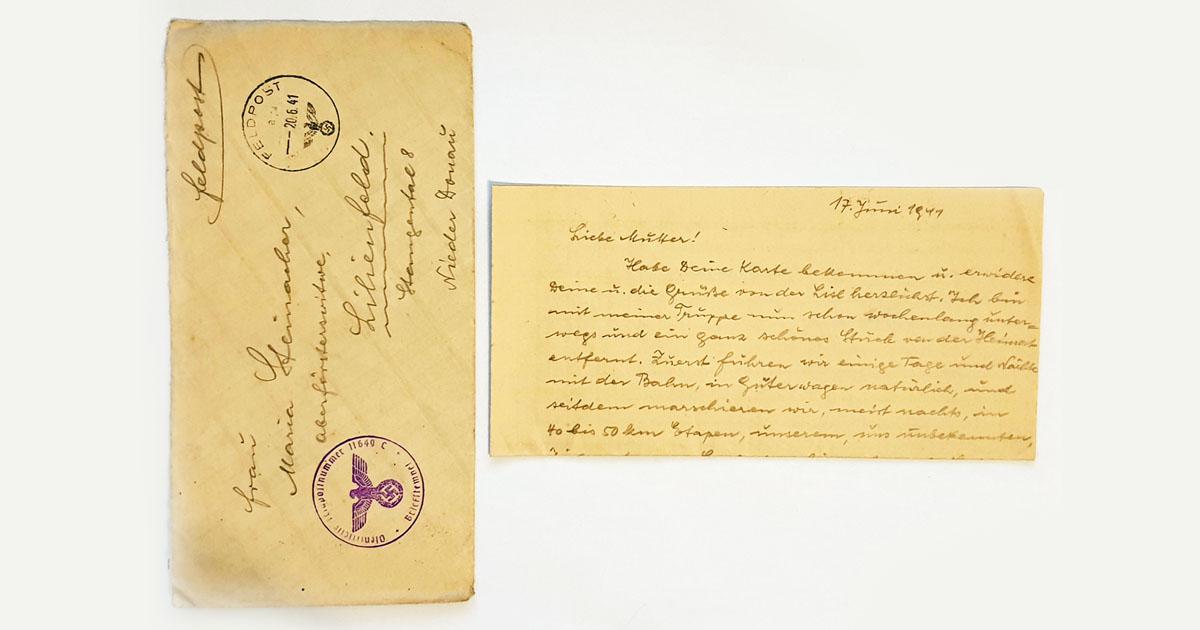 Feldpost
FELDPOST
20.6.41
Frau
Maria Steinacher,
Oberförsterswitwe,
Lilienfeld,
Stangental 8
Nieder Donau
Feldpostnummer 11649 C
Dienststelle
Briefstempel
17. Juni 1941
Liebe Mutter!
Habe Deine Karte bekommen u. erwidere
Deine u. die Grüße von der Lisl herzlichst. Ich bin
mit meiner Truppe nun schon wochenlang unter-
wegs und ein ganz schönes Stück von der Heimat
entfernt. Zuerst fuhren wir einige Tage und Nächte
mit der Bahn, in Güterwagen natürlich, und
seitdem marschieren wir, meist nachts, in
40 bis 50 km Etapen, unserem, uns unbekannten,